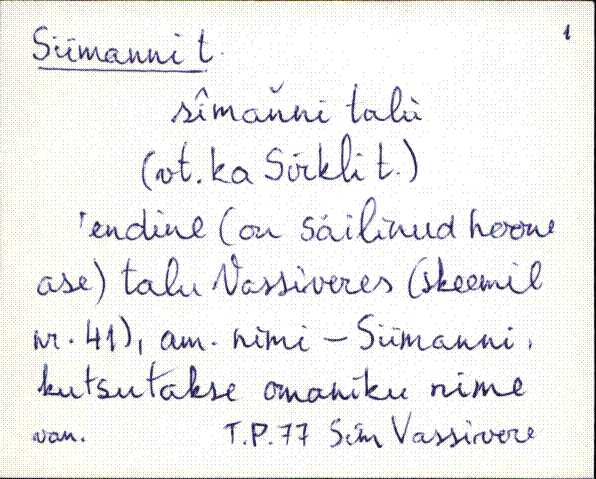 1
Siimanni t.
sîmaňni talù
(vt. ka Sörkli t.)
'endine (on säilinud hoone
ase) talu Vassiveres (skeemil
nr. 41), am. nimi – Siimanni,
kutsutakse omaniku nime
van. T.P. 77 Sim Vassivere